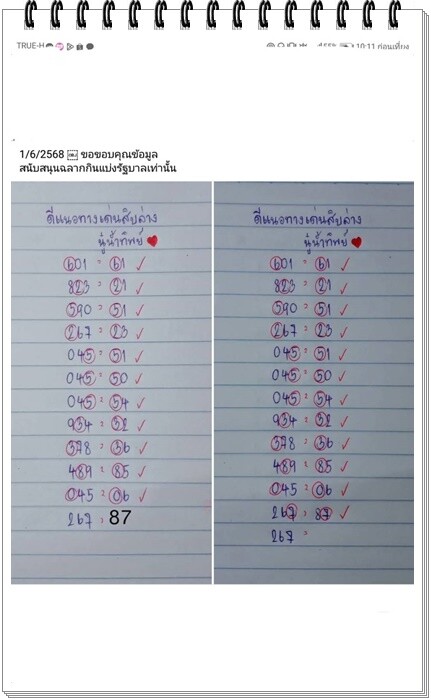 TRUE-H
55% 10:11 ก่อนเที่ยง
1/6/2568 ขอขอบคุณข้อมูล
สนับสนุนฉลากกินแบ่งรัฐบาลเท่านั้น
ดีแนวทางเด่นสิบล่าง
นู๋น้ำทิพย์ ❤
601 = 61 ✓
823 = 21 ✓
590 = 51 ✓
267 = 23 ✓
045 = 51 ✓
045 = 50 ✓
045 = 54 ✓
934 = 32 ✓
378 = 36 ✓
489 = 85 ✓
045 = 06 ✓
267 = 87
ดีแนวทางเด่นสิบล่าง
นู๋น้ำทิพย์ ❤
601 = 61 ✓
823 = 21 ✓
590 = 51 ✓
267 = 23 ✓
045 = 51 ✓
045 = 50 ✓
045 = 54 ✓
934 = 32 ✓
378 = 36 ✓
489 = 85 ✓
045 = 06 ✓
267 = 87 ✓
267 =